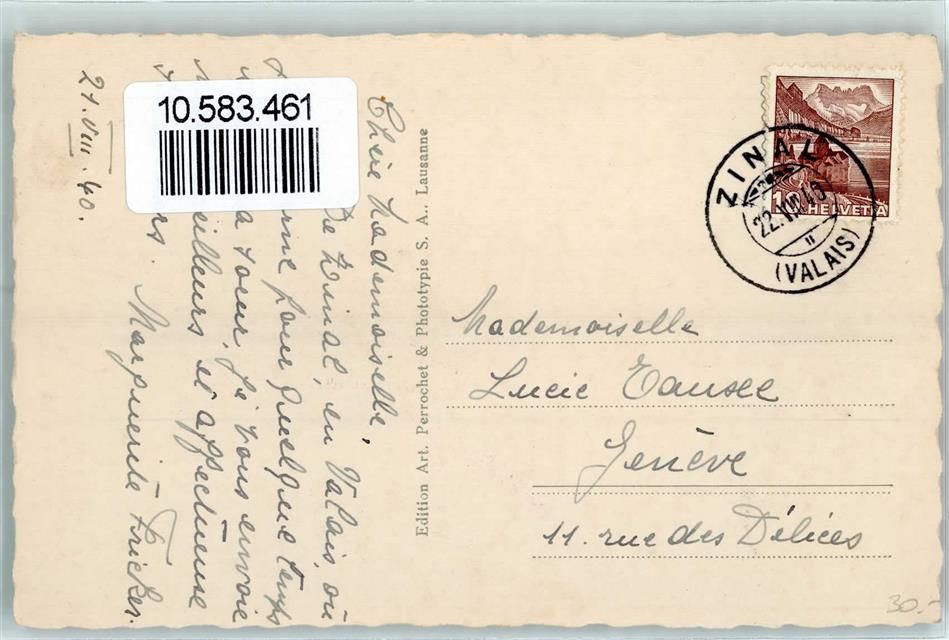 10.583.461
21.VIII.40.
Chère Mademoiselle,
De Zinal, en Valais où
pour quelque temps
sœur, je vous envoie
meilleurs et affectueux
Marguerite Fricker.
Edition Art. Perrochet & Phototypie S. A., Lausanne
ZINAL
22.VIII.40
(VALAIS)
10 HELVETIA
Mademoiselle
Lucie
Genève
11. rue des Délices
30.-